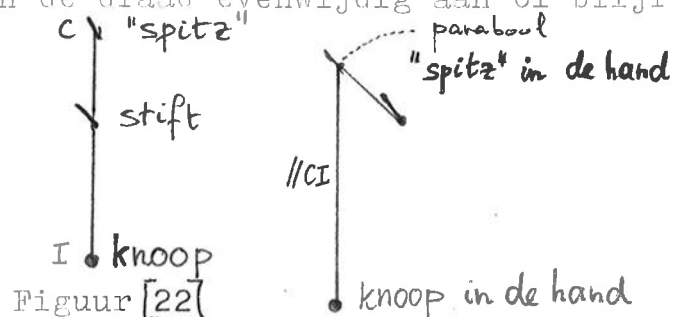 n de draad evenwijdig aan of blijf
C "spitz"
stift
I knoop
Figuur [22(
paraboul
"spitz" in de hand
//CI
knoop in de hand